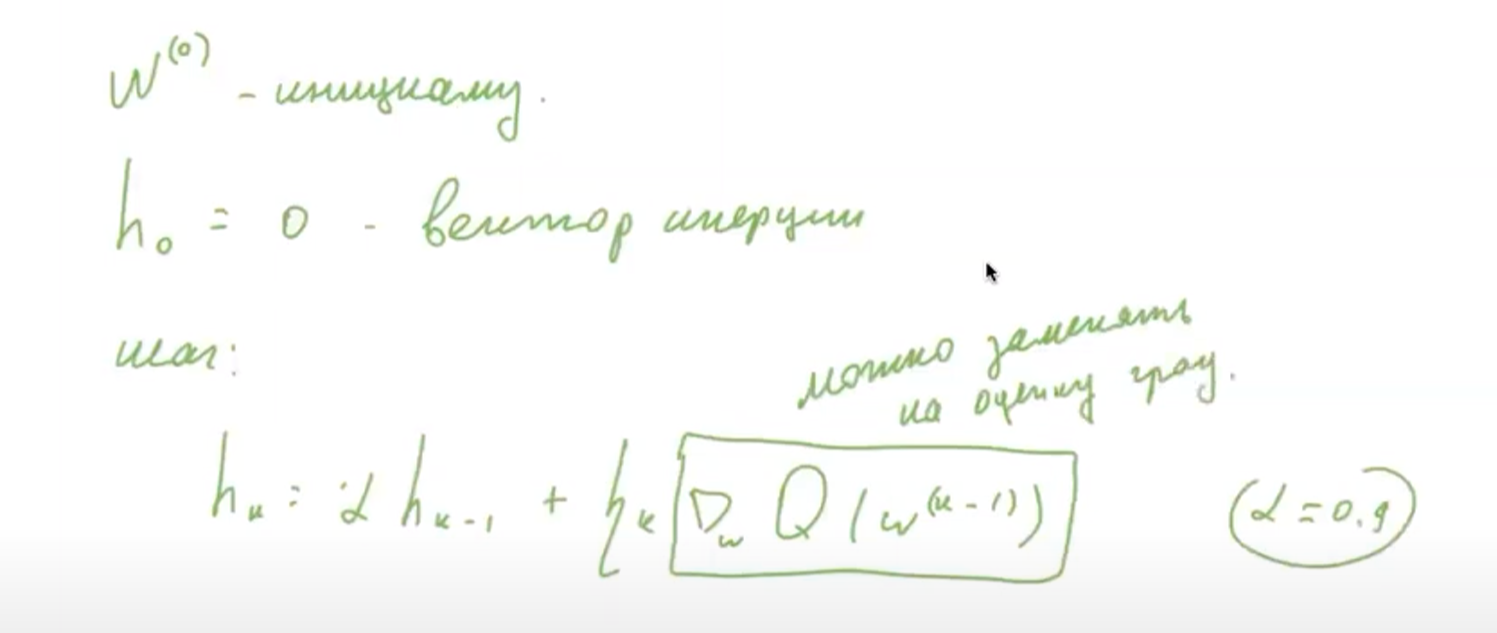 w^(0) - инициализ.
h_0 = 0 - вектор инерции
шаг:
можно заменять
на оценку град.
h_k = α h_{k-1} + η_k ∇_w Q(w^(k-1)) (α = 0.9)